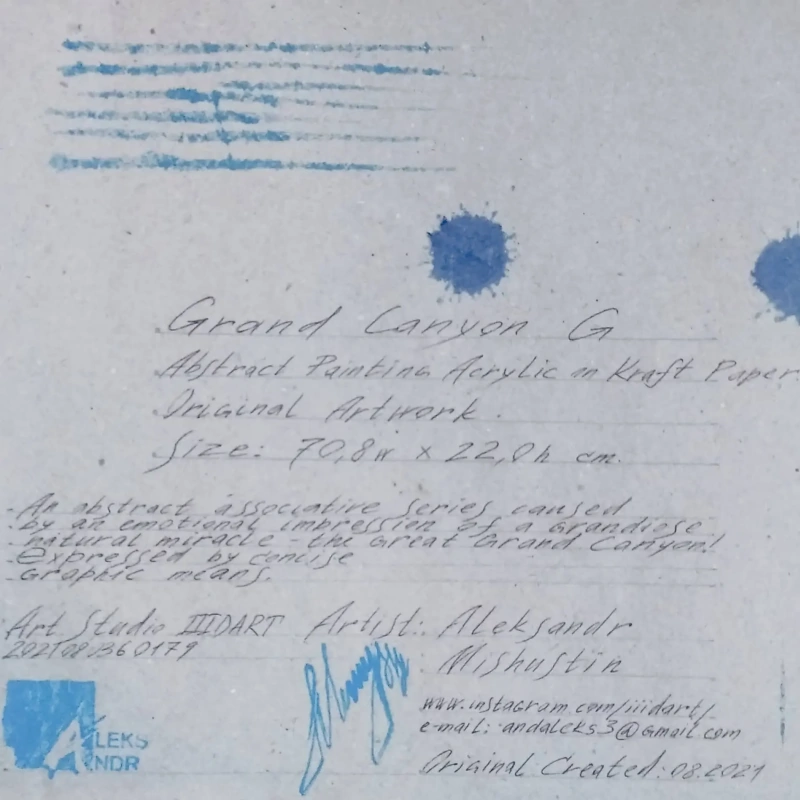 Grand Canyon G
Abstract Painting Acrylic on Kraft Paper
Original Artwork.
Size: 70,8w x 22,0h cm.
An abstract associative series caused
by an emotional impression of a Grandiose
natural miracle - the Great Grand Canyon!
expressed by concise
Graphic means.
Art Studio IIIDART
Artist: Aleksandr
Mishustin
www.instagram.com/iiidart/
e-mail: andaleks3@gmail.com
Original Created: 08.2021
ALEKS
ANDR